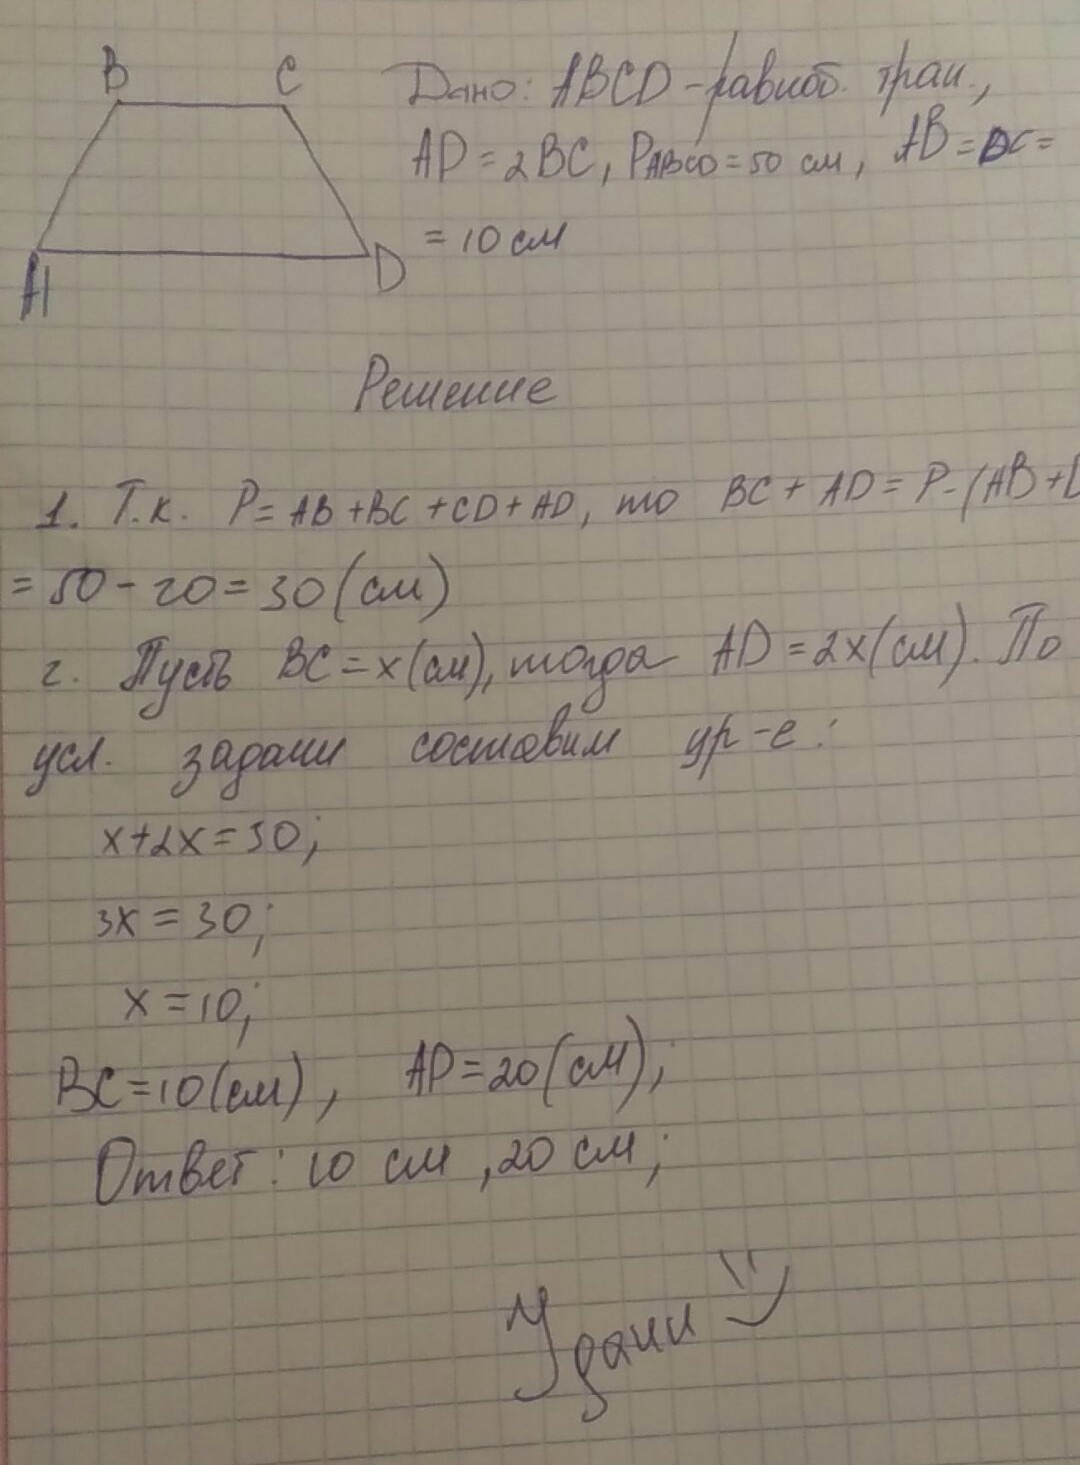 B C
A D
Дано: ABCD - равноб. трап.,
AD = 2BC, PABCD = 50 см, AB = DC =
= 10 см
Решение
1. Т.к. P = AB + BC + CD + AD, то BC + AD = P - (AB +
= 50 - 20 = 30 (см)
2. Пусть BC = x (см), тогда AD = 2x (см). По
усл. задачи составим ур-е:
x + 2x = 30;
3x = 30;
x = 10;
BC = 10 (см), AD = 20 (см);
Ответ: 10 см, 20 см;
Удачи